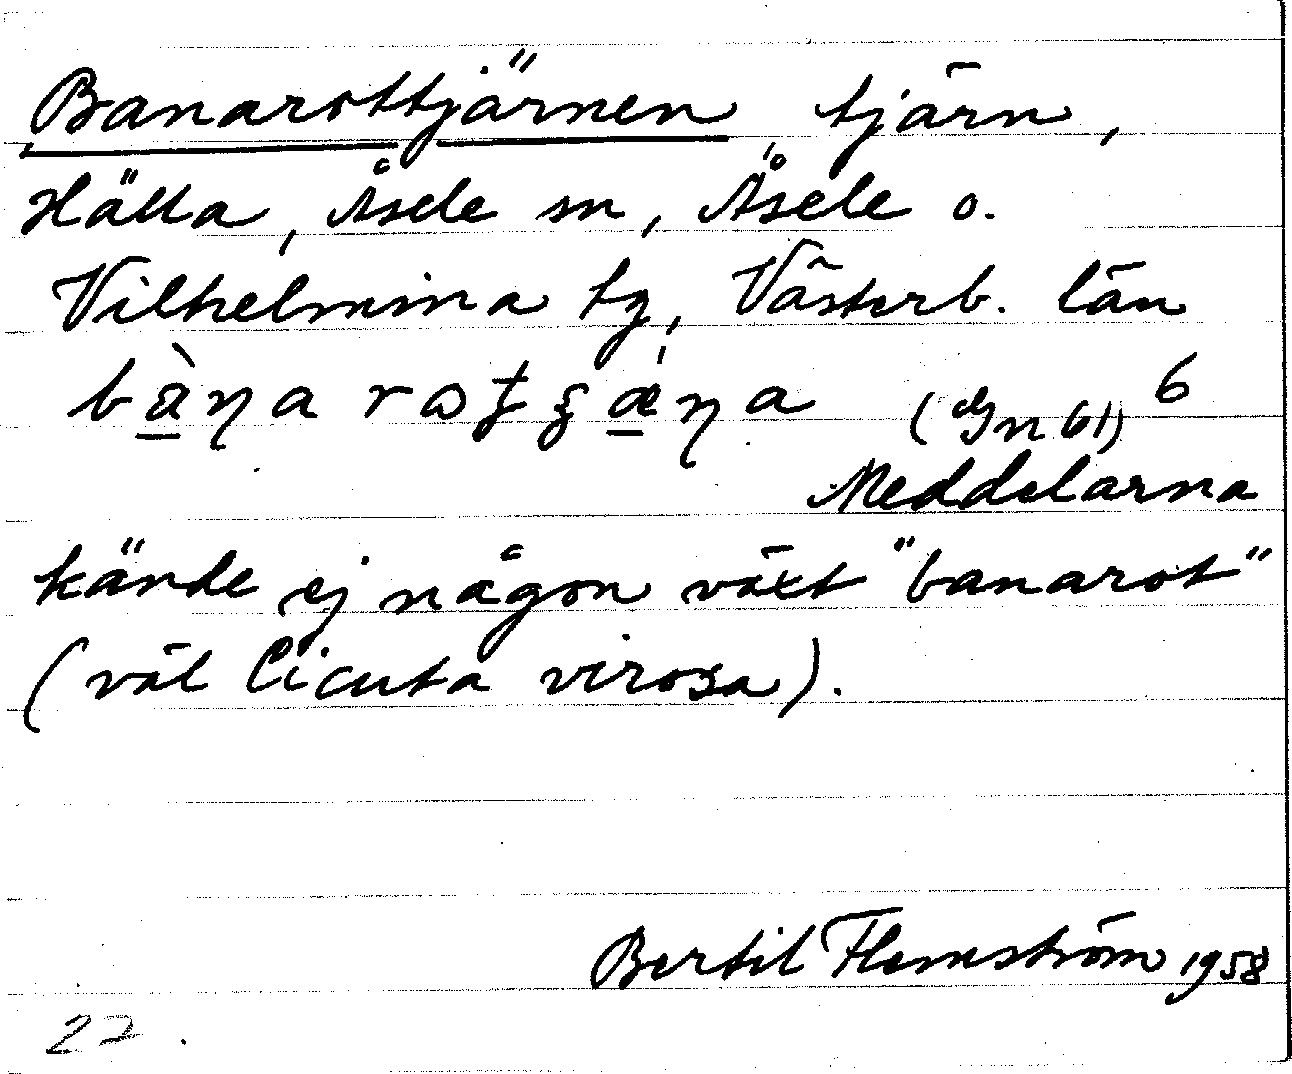 Banarottjärnen, tjärn,
Hälla, Åsele sn, Åsele o.
Vilhelmina tg, Västerb. län
(Gn 61) 6
Meddelarna
kände ej någon växt "banarot"
(väl Cicuta virosa).
Bertil Flemström 1958
22.